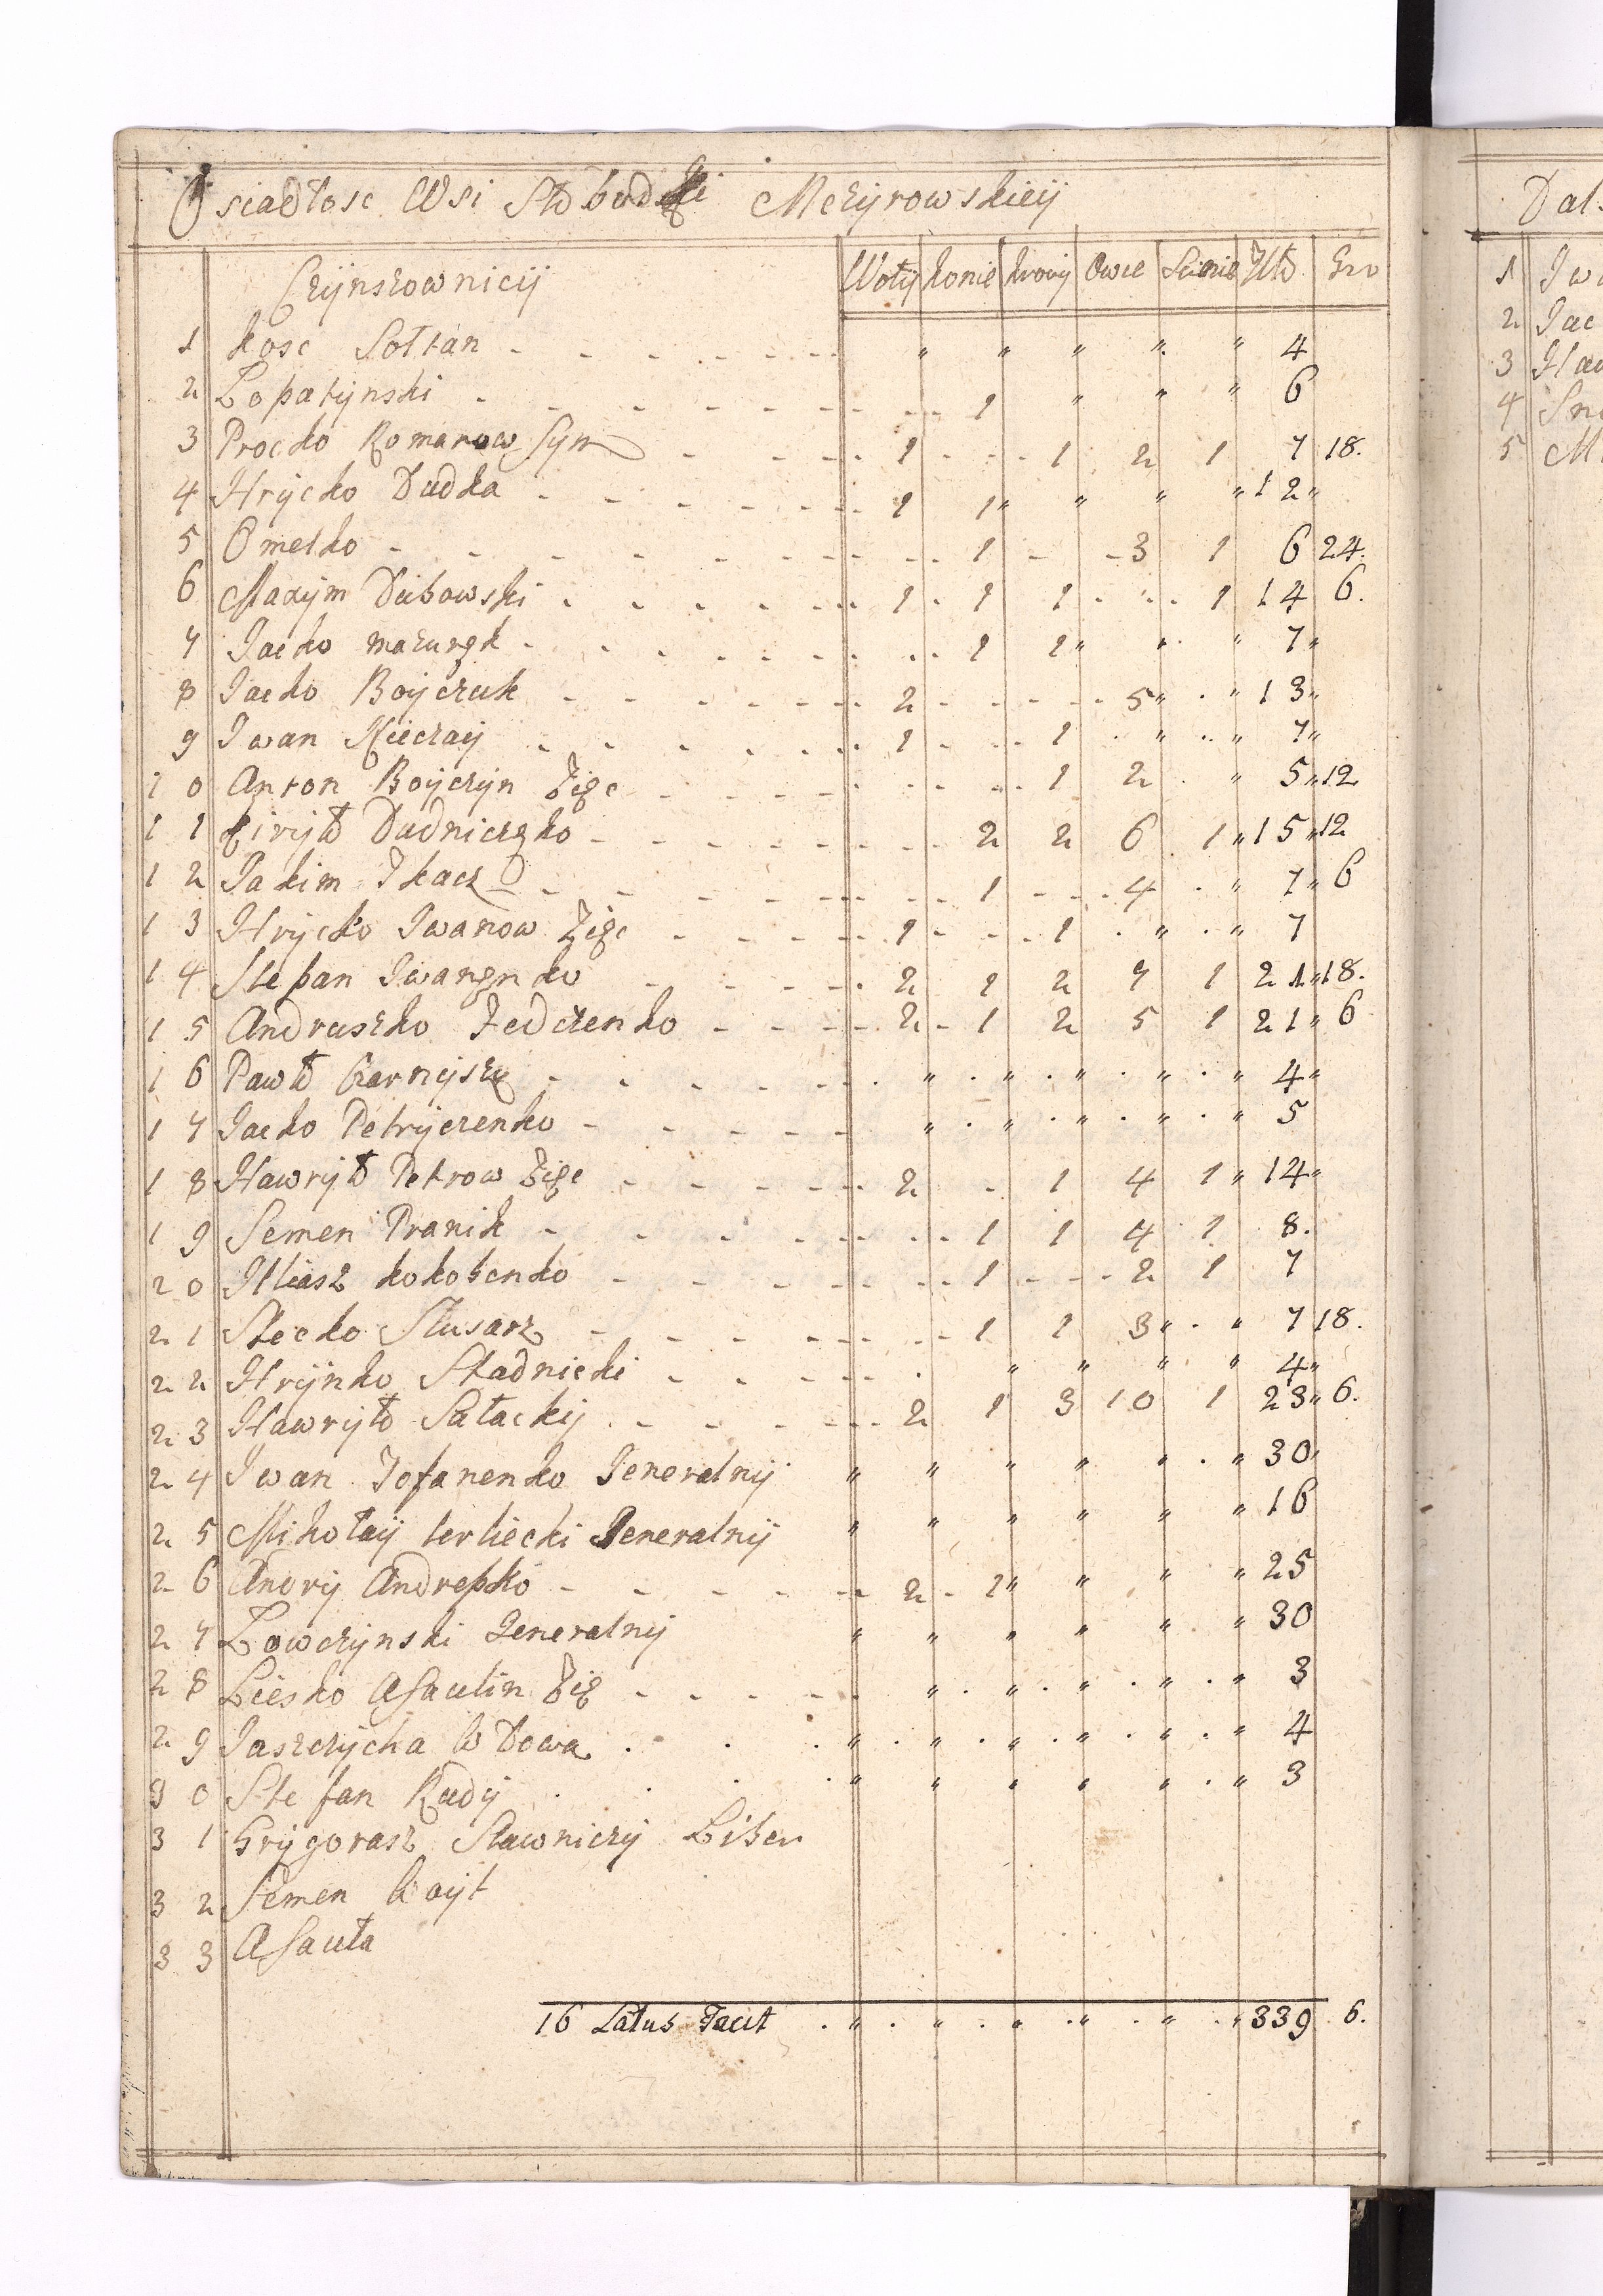 Osiadłosc Wsi Słobodki Meżyrowskieÿ
Czÿnszownicÿ Wołÿ konie krowÿ Owce Swinie Złt Gro
1 kosc Sołtan - - - - - " " " " " 4
2 Łopatÿnski - - - - - 1 " " " 6
3 Procko Romanow Sÿn - - - 1 - - 1 2 1 7 18.
4 Hrÿcko Dudka - - - - - 1 1 " " " " 12 "
5 Omelko - - - - - 1 - - 3 1 6 24.
6 Maxÿm Dubowski - - - - - 1 - 1 1 - - 1 14 6.
7 Jacko mazurek - - - - - 1 1 " " " 7 "
8 Jacko Boÿczuk - - - - - 2 - - - 5 " " 13 "
9 Iwan Nieczaÿ - - - - - 1 - - 1 " " 7 "
10 Anton Boÿczÿn Zięc - - - - - 1 2 " 5 " 12
11 kirÿło Dudniczęko - - - - - 2 2 6 1 " 15 " 12
12 Jakim Tkacz - - - - - 1 - - 4 " 7 " 6
13 Hrÿcko Iwanow Zięc - - - - 1 - - 1 " " 7
14 Stepan Iwanęnko - - - - 2 1 2 7 1 21 " 18.
15 Andruszko Fedczenko - - - - 2 - 1 2 5 1 21 " 6
16 Pawło Czarnÿszę - - - - - " " " " " 4 "
17 Jacko Petrÿczenko - - - - - " " " " " 5
18 Hawrÿło Petrow Zięc - - - - - 2 - 1 4 1 " 14 "
19 Semen Pranik - - - - - 1 1 4 1 8.
20 Illiasz kokoszenko - - - - - 1 - - 2 1 7
21 Stecko Slusarz - - - - - 1 1 3 " " 7 18.
22 Hrÿnko Stadnicki - - - - - " " " " 4 "
23 Hawrÿło Sałackÿ - - - - 2 1 3 10 1 23 " 6.
24 Iwan Jofanenko Jeneralnÿ " " " " " " 30 "
25 Mikołaÿ terliecki Jeneralnÿ " " " " " " 16
26 Andrÿ Andrepko - - - - - 2 - 1 " " " " 25
27 Łowczÿnski Jeneralnÿ " " " " " " 30
28 Liesko Asaulin Zię - - - - " " " " " 3
29 Jaszczÿcha Wdowa " " " " " " 4
30 Stefan Rudÿ " " " " " " 3
31 Grÿgorasz Stawniczÿ Liber
32 Semen Woÿt
33 Asauła
16 Latus Facit " " " " " " 339 6.
Dal
1 Iw
2 Jac
3 Ha
4
5 M